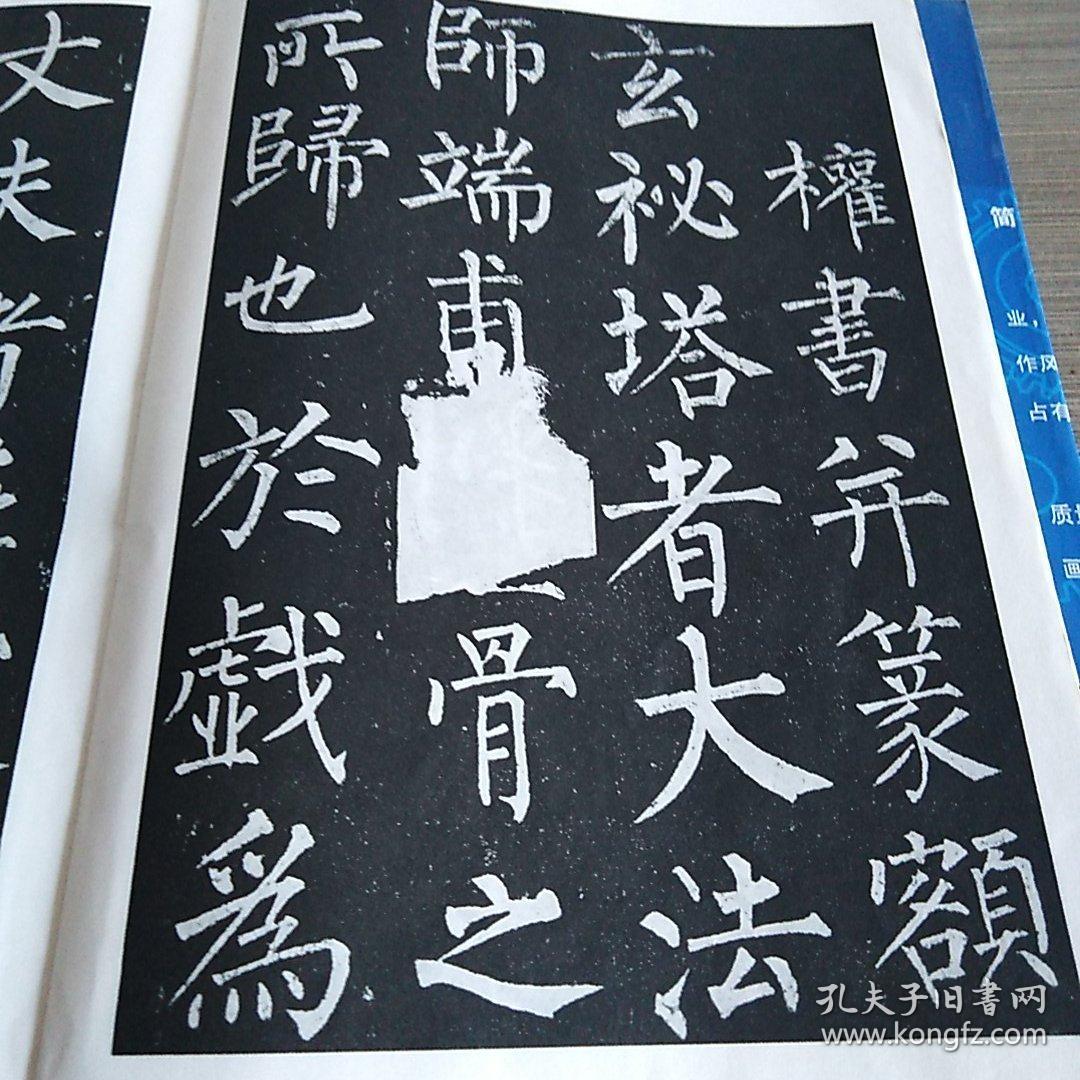 權書并篆額
玄祕塔者大法
師端甫骨之
所歸也於戲為
丈夫者
简
业，
作风
占有
质
画
孔夫子旧書网
www.kongfz.com